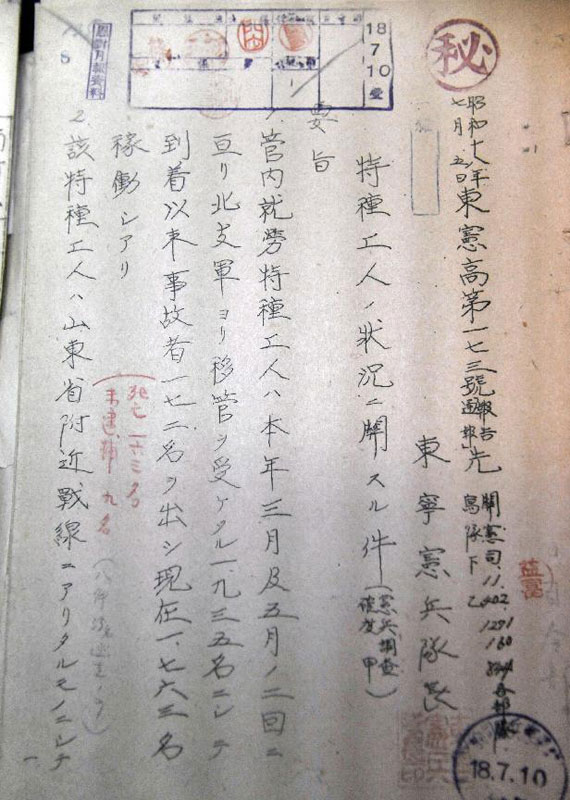 秘
18
7
10
18.7.10
昭和十八年
七月五日
東憲高第一七三號
報告
通報
先
関憲司.
各部隊
東寧憲兵隊長
特種工人ノ状況ニ関スル件
(憲兵調査
確度 甲)
要旨
1、管内就勞特種工人ハ本年三月及五月ノ二回ニ
亘リ北支軍ヨリ移管ヲ受ケタル一、九三五名ニシテ
到着以来事故者一七二名ヲ出シ現在一、七六三名
稼働シアリ
死亡 一六三名
未逮捕 九名
2.該特種工人ハ山東省附近戰線ニアリタルモノニシテ